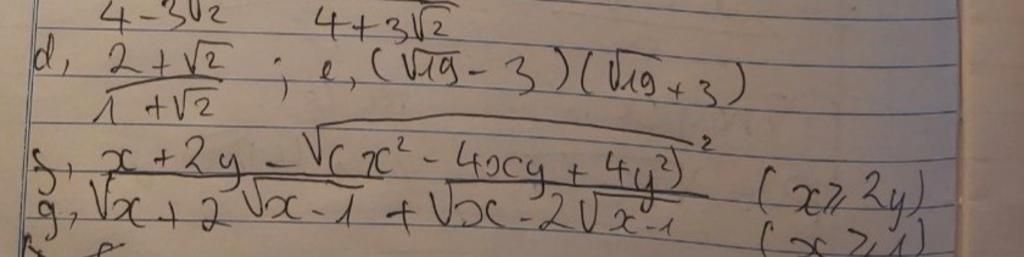 4-3√2 4+3√2
d, (2+√2)/(1+√2) ; e, (√19 - 3)(√19 + 3)
f, x + 2y - √(x² - 4xy + 4y²)² (x ≥ 2y)
g, √(x + 2√(x-1)) + √(x - 2√(x-1)) (x ≥ 1)